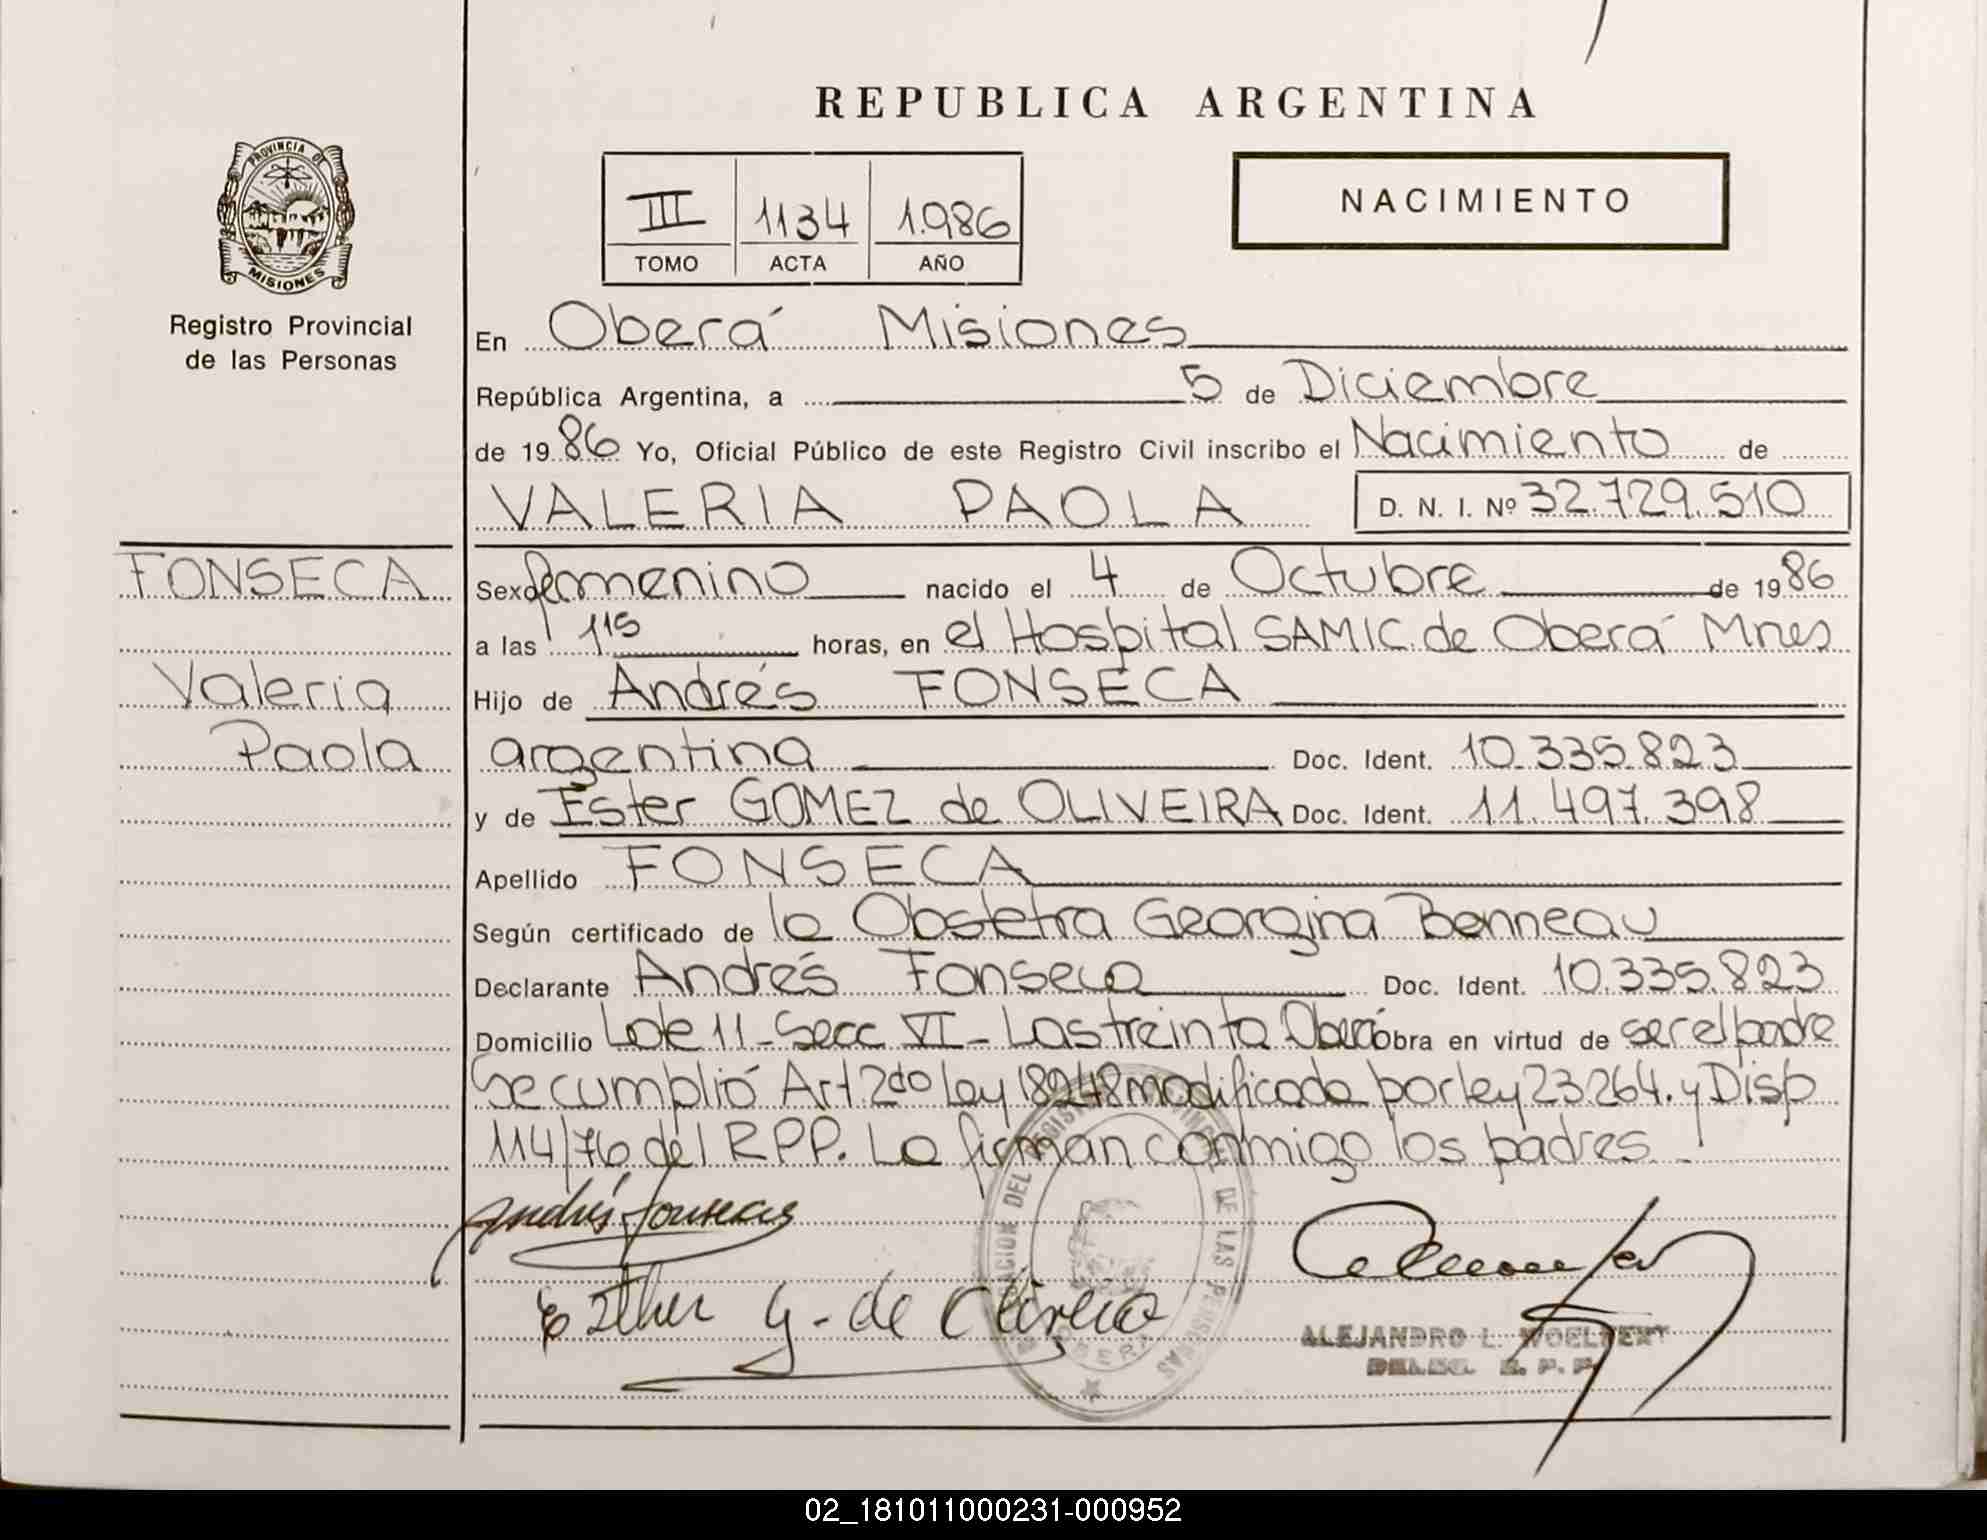 REPUBLICA ARGENTINA
PROVINCIA DE
MISIONES
Registro Provincial
de las Personas
NACIMIENTO
III 1134 1.986
TOMO ACTA AÑO
En Oberá Misiones
República Argentina, a 5 de Diciembre
de 1986 Yo, Oficial Público de este Registro Civil inscribo el Nacimiento de
VALERIA PAOLA D. N. I. Nº 32.729.510
FONSECA
Valeria
Paola
Sexo femenino nacido el 4 de Octubre de 1986
a las 1 15 horas, en el Hospital SAMIC. de Oberá Mnes
Hijo de Andrés FONSECA
argentina Doc. Ident. 10.335.823
y de Ester GOMEZ de OLIVEIRA Doc. Ident. 11.497.398
Apellido FONSECA
Según certificado de la Obstetra Georgina Benneau
Declarante Andrés Fonseca Doc. Ident. 10.335.823
Domicilio Lote 11-Secc VI-Las treinta Oberá obra en virtud de ser el padre
Se cumplió Art 2do Ley 18248 modificada por ley 23.264. y Disp
114/76 del RPP. La firman conmigo los padres
Andrés Fonseca
Esther G. de Olivera
DE LAS PERSONAS
ALEJANDRO L.
DELEG. R. P. P.
02_181011000231-000952